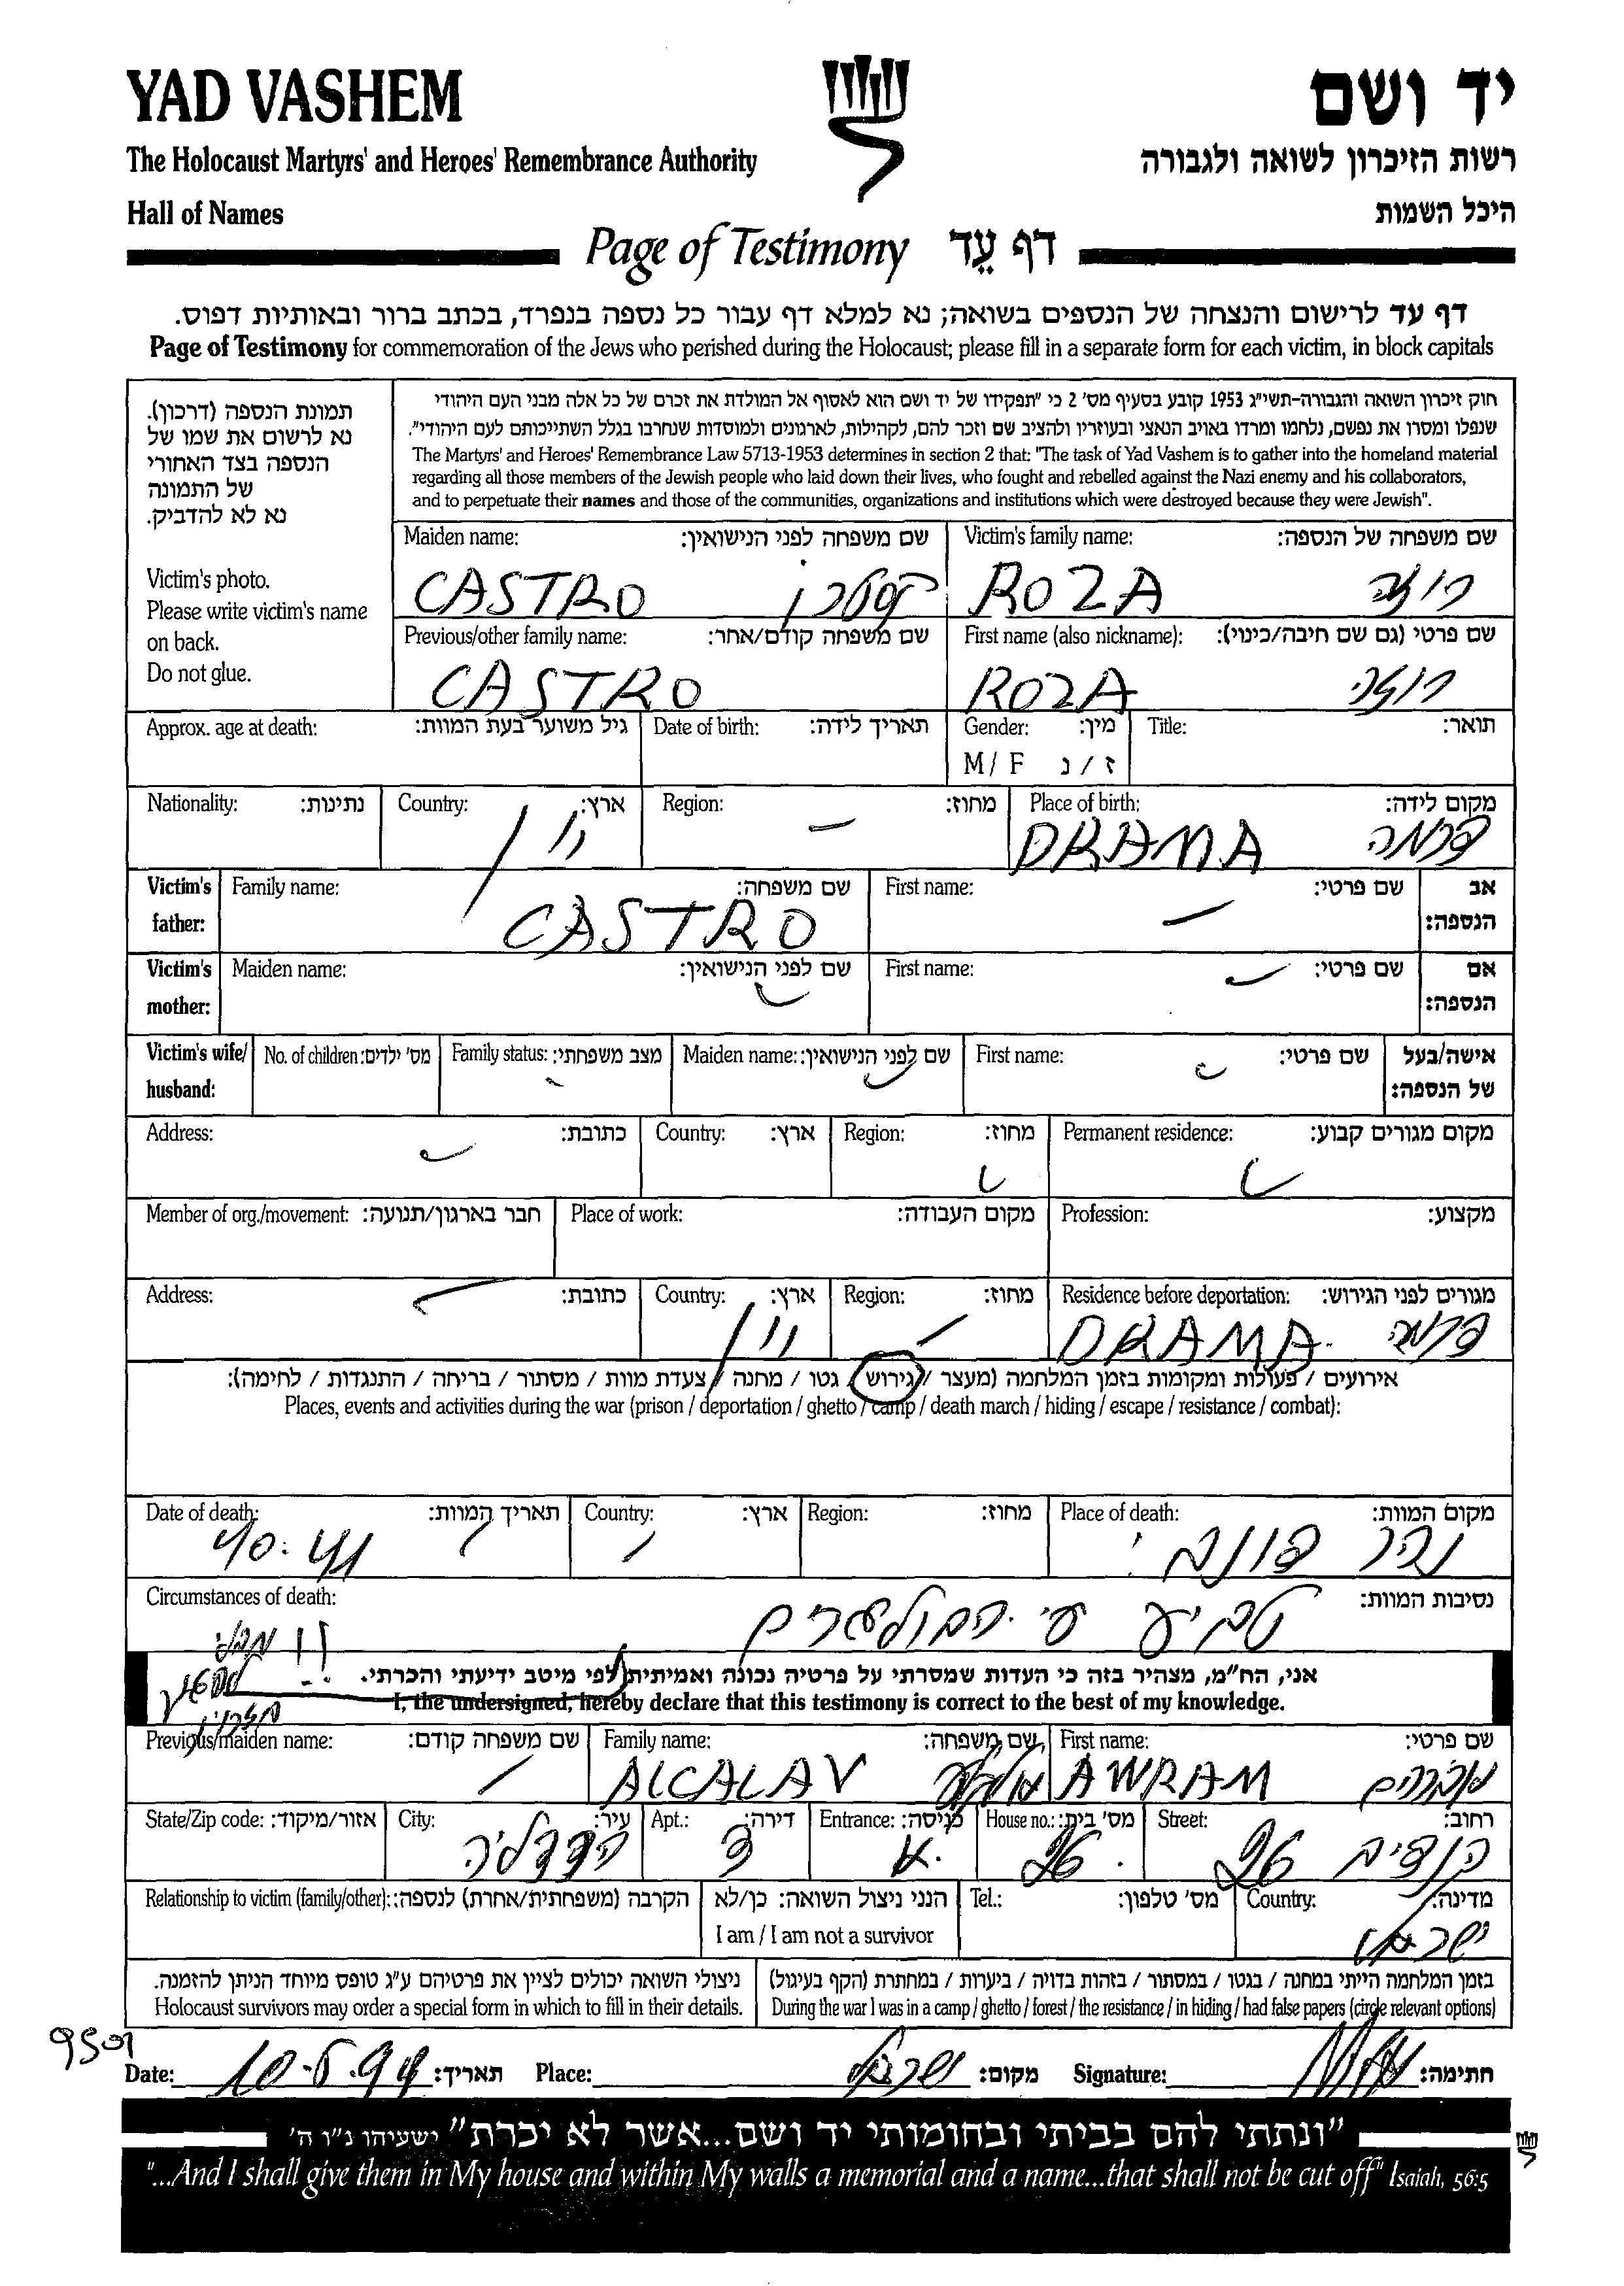 YAD VASHEM
יד ושם
The Holocaust Martyrs' and Heroes' Remembrance Authority
רשות הזיכרון לשואה ולגבורה
Hall of Names
היכל השמות
Page of Testimony דף עֵד
דף עד לרישום והנצחה של הנספים בשואה; נא למלא דף עבור כל נספה בנפרד, בכתב ברור ובאותיות דפוס.
Page of Testimony for commemoration of the Jews who perished during the Holocaust; please fill in a separate form for each victim, in block capitals
תמונת הנספה (דרכון).
נא לרשום את שמו של
הנספה בצד האחורי
של התמונה
נא לא להדביק.
Victim's photo.
Please write victim's name
on back.
Do not glue.
חוק זיכרון השואה והגבורה-תשי"ג 1953 קובע בסעיף מס' 2 כי "תפקידו של יד ושם הוא לאסוף אל המולדת את זכרם של כל אלה מבני העם היהודי
שנפלו ומסרו את נפשם, נלחמו ומרדו באויב הנאצי ובעוזריו ולהציב שם וזכר להם, לקהילות, לארגונים ולמוסדות שנחרבו בגלל השתייכותם לעם היהודי".
The Martyrs' and Heroes' Remembrance Law 5713-1953 determines in section 2 that: "The task of Yad Vashem is to gather into the homeland material
regarding all those members of the Jewish people who laid down their lives, who fought and rebelled against the Nazi enemy and his collaborators,
and to perpetuate their names and those of the communities, organizations and institutions which were destroyed because they were Jewish".
Maiden name: שם משפחה לפני הנישואין: Victim's family name: שם משפחה של הנספה:
CASTRO קסטרו ROZA רוזה
Previous/other family name: שם משפחה קודם/אחר: First name (also nickname): שם פרטי (גם שם חיבה/כינוי):
CASTRO ROZA רוזה
Approx. age at death: גיל משוער בעת המוות: Date of birth: תאריך לידה: Gender: מין: Title: תואר:
M / F ז / נ
Nationality: נתינות: Country: ארץ: Region: מחוז: Place of birth: מקום לידה:
יוון DRAMA דרמה
Victim's father: Family name: שם משפחה: First name: שם פרטי: אב הנספה:
CASTRO
Victim's mother: Maiden name: שם לפני הנישואין: First name: שם פרטי: אם הנספה:
Victim's wife/ husband: No. of children: מס' ילדים: Family status: מצב משפחתי: Maiden name: שם לפני הנישואין: First name: שם פרטי: אישה/בעל של הנספה:
Address: כתובת: Country: ארץ: Region: מחוז: Permanent residence: מקום מגורים קבוע:
Member of org./movement: חבר בארגון/תנועה: Place of work: מקום העבודה: Profession: מקצוע:
Address: כתובת: Country: ארץ: Region: מחוז: Residence before deportation: מגורים לפני הגירוש:
יוון DRAMA דרמה
אירועים / פעולות ומקומות בזמן המלחמה (מעצר / גירוש / גטו / מחנה / צעדת מוות / מסתור / בריחה / התנגדות / לחימה):
Places, events and activities during the war (prison / deportation / ghetto / camp / death march / hiding / escape / resistance / combat):
Date of death: תאריך המוות: Country: ארץ: Region: מחוז: Place of death: מקום המוות:
40.41 נהר דונב
Circumstances of death: נסיבות המוות:
טביע ע"י הבולגרים
אני, הח"מ, מצהיר בזה כי העדות שמסרתי על פרטיה נכונה ואמיתית לפי מיטב ידיעתי והכרתי.
I, the undersigned, hereby declare that this testimony is correct to the best of my knowledge.
Previous/maiden name: שם משפחה קודם: Family name: שם משפחה: First name: שם פרטי:
ALCALAY אלקלעי AWRAM אברהם
State/Zip code: אזור/מיקוד: City: עיר: Apt.: דירה: Entrance: כניסה: House no.: מס' בית: Street: רחוב:
הרצליה א 26 הנדיב 26
Relationship to victim (family/other): הקרבה (משפחתית/אחרת) לנספה: הנני ניצול השואה: כן/לא Tel.: מס' טלפון: Country: מדינה:
I am / I am not a survivor ישראל
ניצולי השואה יכולים לציין את פרטיהם ע"ג טופס מיוחד הניתן להזמנה. בזמן המלחמה הייתי במחנה / בגטו / במסתור / בזהות בדויה / ביערות / במחתרת (הקף בעיגול)
Holocaust survivors may order a special form in which to fill in their details. During the war I was in a camp / ghetto / forest / the resistance / in hiding / had false papers (circle relevant options)
Date: תאריך: Place: ישראל מקום: Signature: חתימה:
"ונתתי להם בביתי ובחומותי יד ושם...אשר לא יכרת" ישעיהו נ"ו ה'
"...And I shall give them in My house and within My walls a memorial and a name...that shall not be cut off" Isaiah, 56:5